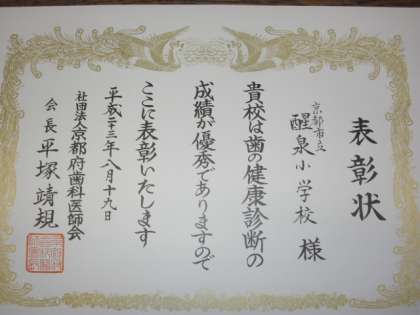 表彰状
京都市立
醒泉小学校 様
貴校は歯の健康診断の
成績が優秀でありますので
ここに表彰いたします
平成二十三年八月十九日
社団法人京都府歯科医師会
会長 平塚靖規